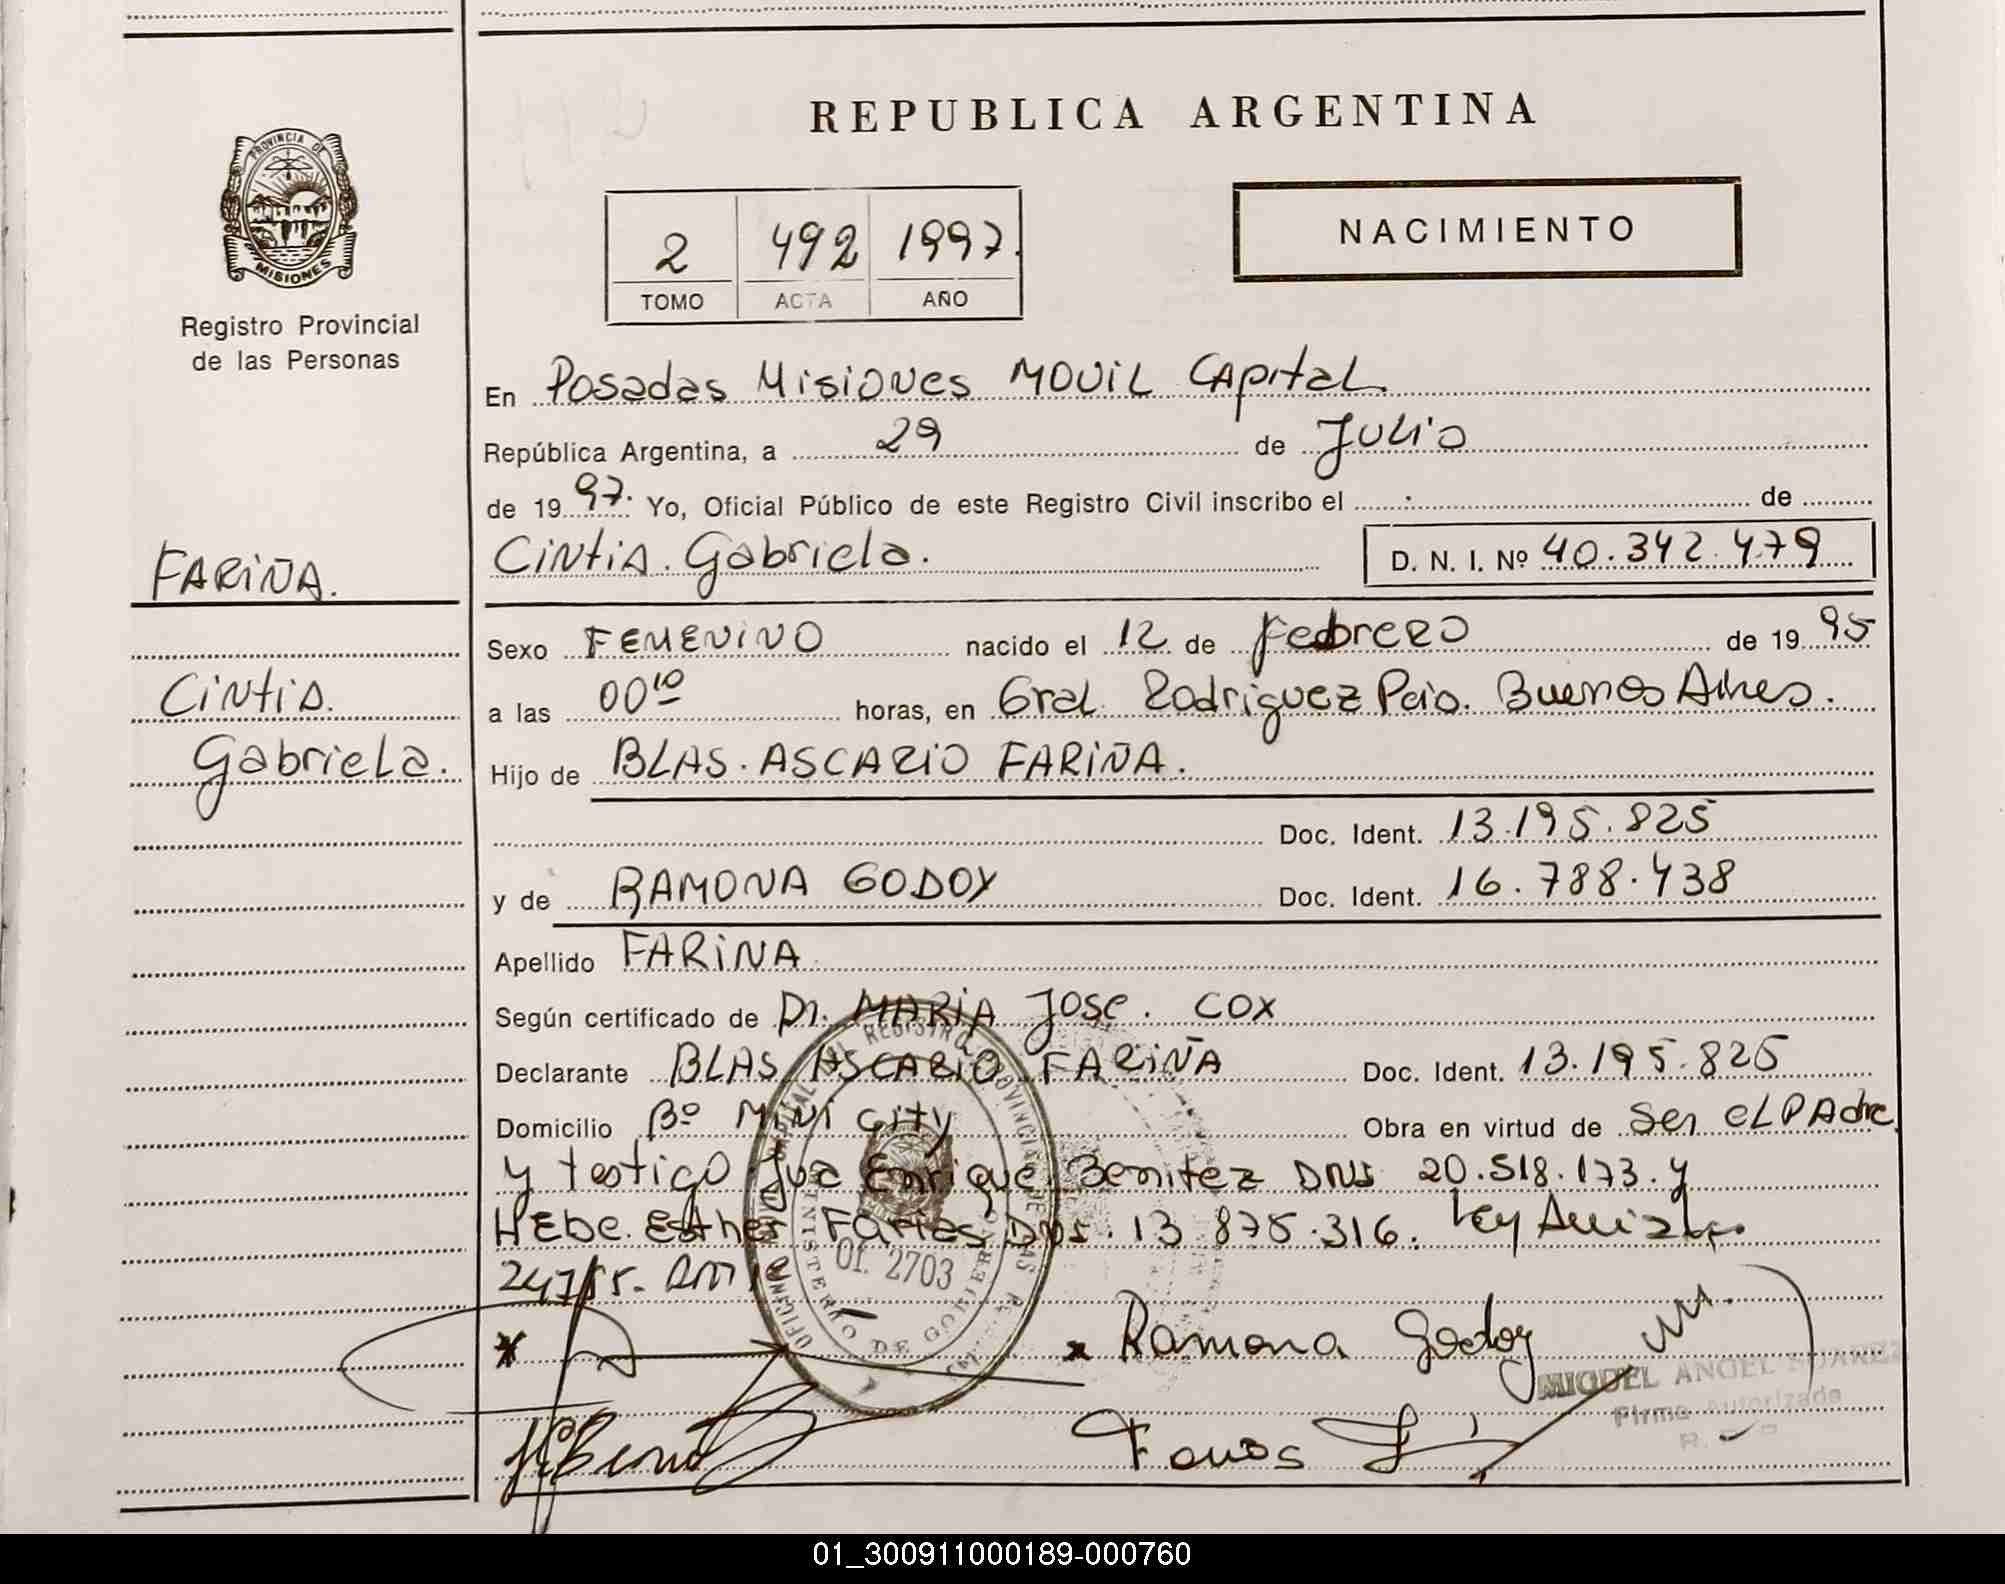 REPUBLICA ARGENTINA
NACIMIENTO
2 492 1997.
TOMO ACTA AÑO
PROVINCIA DE
MISIONES
Registro Provincial
de las Personas
En Posadas Misiones MOVIL CApitaL.
República Argentina, a 29 de Julio
de 1997. Yo, Oficial Público de este Registro Civil inscribo el de
FARIÑA.
CiNtiA. Gabriela.
D. N. I. Nº 40.342.479
Sexo FEMENINO nacido el 12 de Febrero de 1995
Cintia.
Gabriela.
a las 00¹⁰ horas, en Gral Rodriguez Pcia. Buenos Aires.
Hijo de BLAS. ASCARIO FARIÑA.
Doc. Ident. 13.195.825
y de RAMONA GODOY Doc. Ident. 16.788.438
Apellido FARIÑA
Según certificado de Dr. MARIA Jose. COX
Declarante BLAS ASCARIO FARIÑA Doc. Ident. 13.195.825
Domicilio Bº MiNi City Obra en virtud de Ser eL PAdre
y testigo Enrique Benitez DNI 20.518.173. y
HEbe. Esther Farias DNI. 13 875.316. Ley
OFICINA MOVIL CAPITAL DEL REGISTRO PROVINCIAL DE LAS
MINISTERIO DE GOBIERNO
Of. 2703
Ramona Godoy
MIGUEL ANGEL SUAREZ
Firma Autorizada
01_300911000189-000760